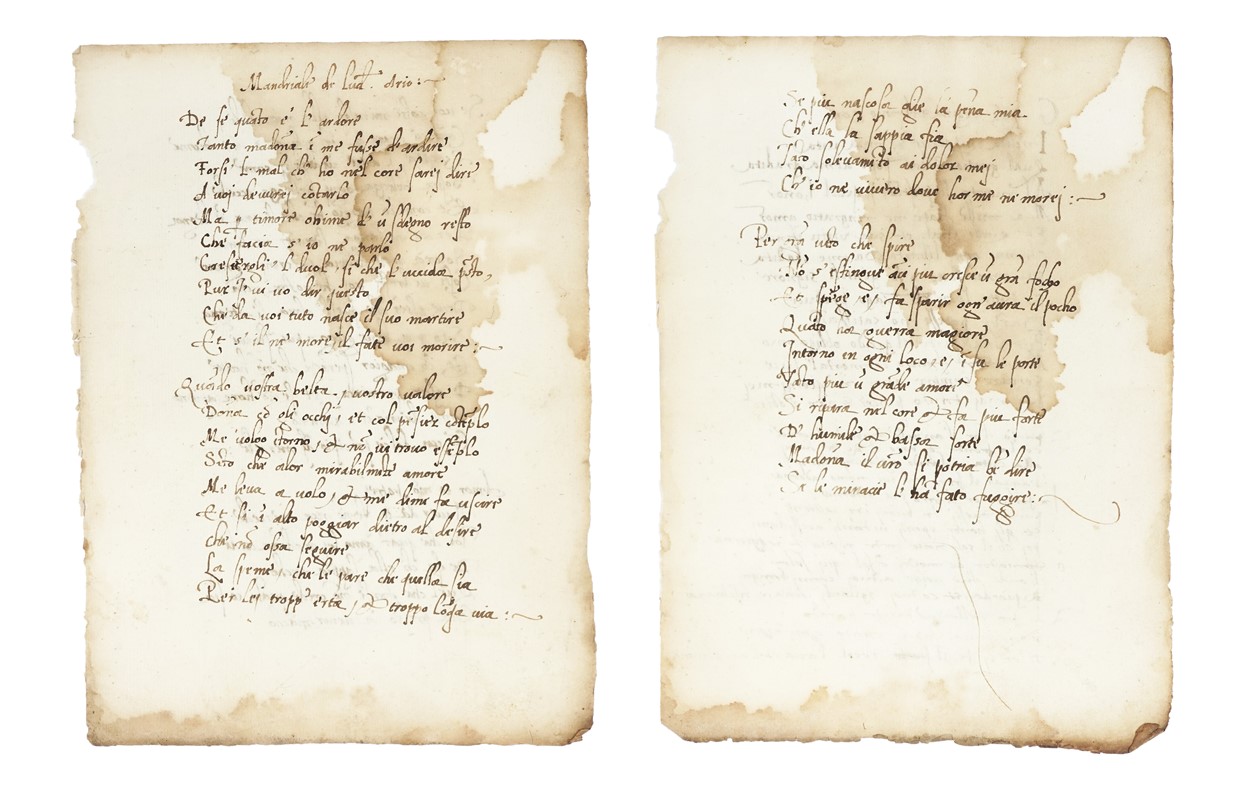 Mandriale de Lud. Ario:~
De se quāto é l'ardore
Tanto madoña ĩ me fusse d'ardire
Forsi l'mal ch' ho nel core sarej dire
A voi deverej cõtarlo
Ma p timore ohime d'ũ sdegno resto
Che facia s'io ne parlo
Cresceroli l'duol, se che l'uccida p̃sto,
Pur vi vo dir questo
Che da voi tuto nasce il suo martire
Et s'il ne more, il fate voi morire:~
Quādo vostra belta, vostro valore
Doña cõ gli occhj, et col p̃sier cõtẽplo
Me volgo ĩtorno, & nõ vi trovo essẽplo
Sẽto che alor mirabilmẽte amore
Me leva a volo, & me di me fa uscire
Et si ĩ alto poggiar dietro al desire
Che nõ ossa seguire
La speme, che le pare che quella sia
Per lej tropp' erta, & troppo lõga via:~
Se piu nascosa che la pena mia
Ch'ella la sappia fia
Tāto solevamẽto ai dolor mej
Ch'io ne vivero dove hor me ne morej:~
Per grā vẽto che spire
Nõ s'estingue āci piu cresce ũ grā focho
Et spẽge, e, fa sparir ogn'aura il pocho
Quāto ha guerra magiore
Intorno in ogni loco, e, ĩ su le porte
Tāto piu ũ grāde amore
Si ripara nel core & fa piu forte
D'humile & bassa sorte
Madoña il vrõ si potria bẽ dire
Se le minacie l'hā fato fuggire:~